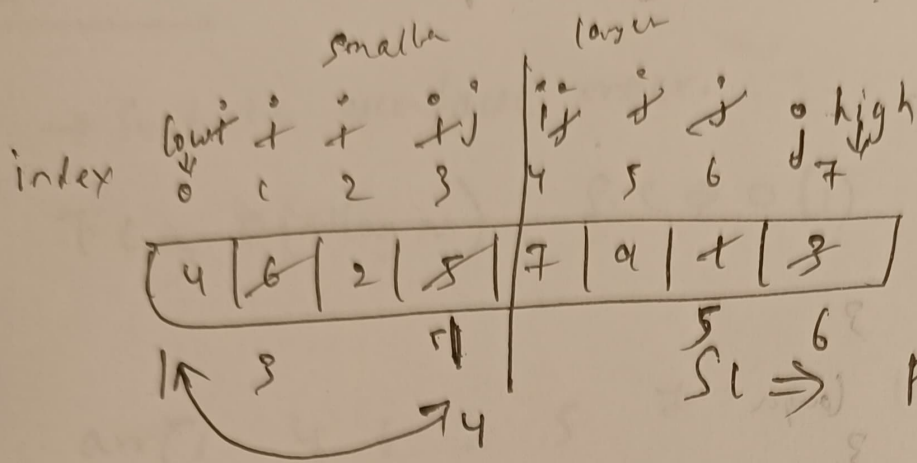 smaller larger
low i i i i j i j j j j high
index 0 1 2 3 4 5 6 7
4 6 2 5 7 9 1 3
1 3 1 5 6
4 S1 ⇒